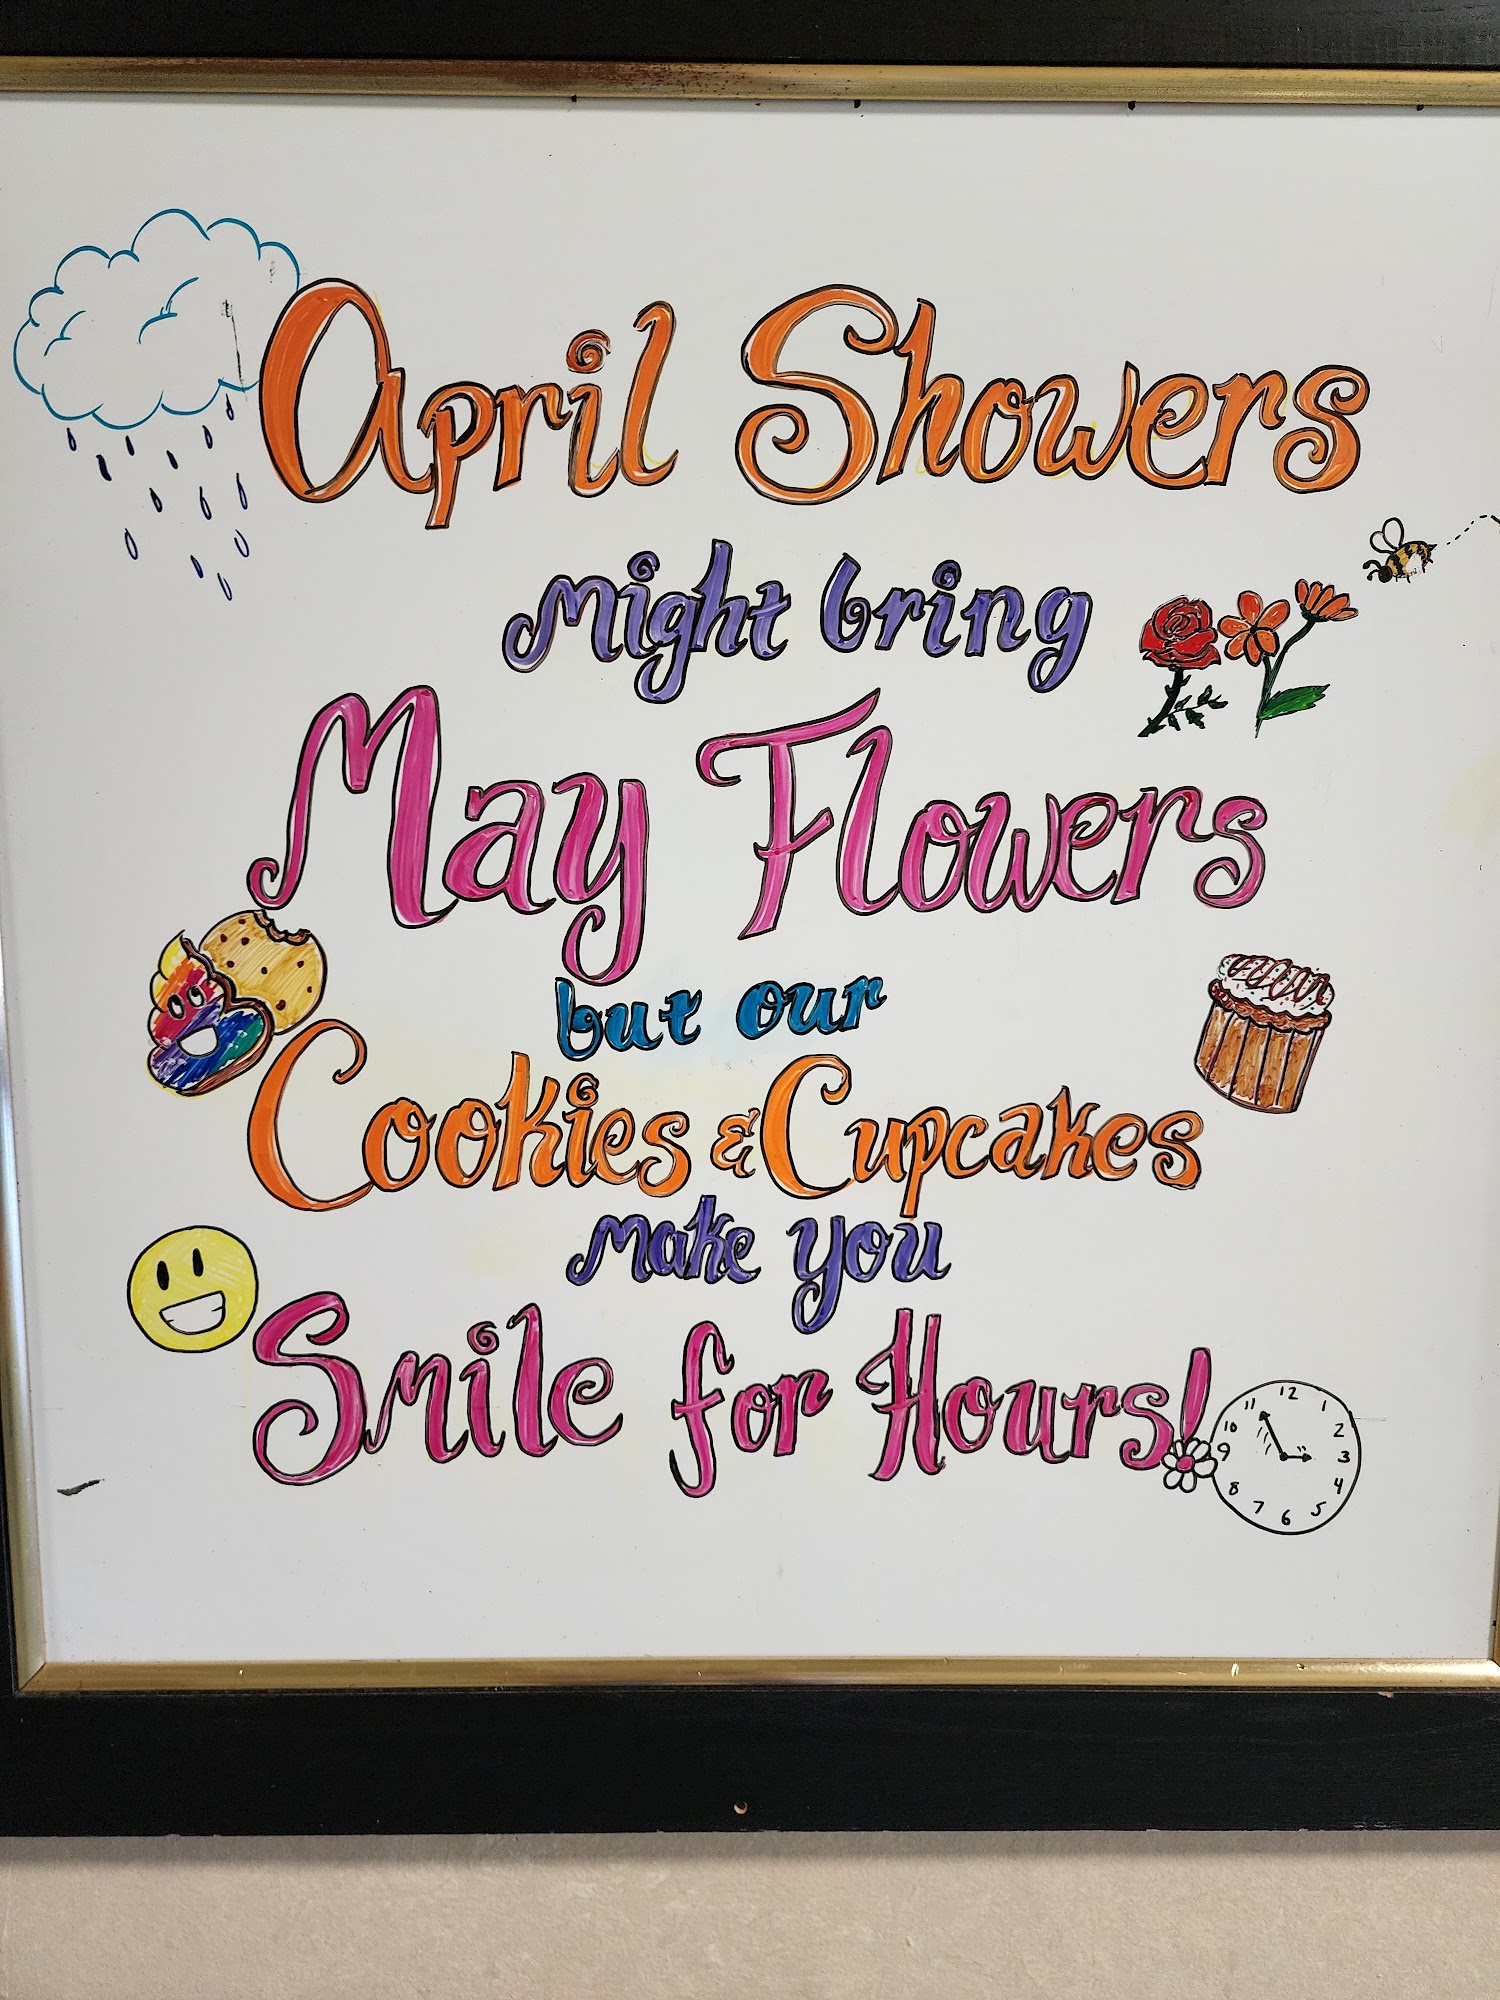 April Showers
might bring
May Flowers
but our
Cookies & Cupcakes
make you
Smile for Hours!
12
11 1
10 2
9 3
8 4
7 5
6